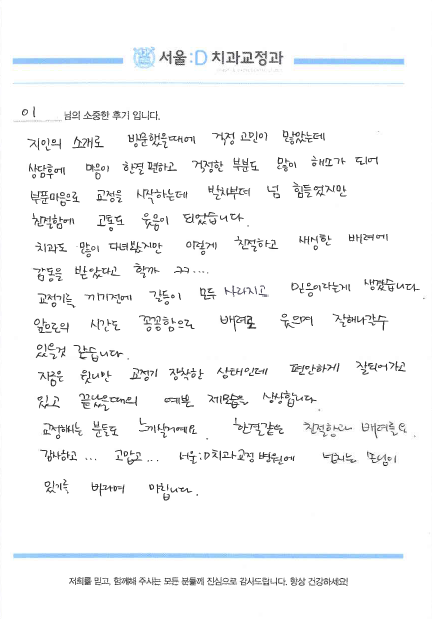 서울:D치과교정과
이 님의 소중한 후기 입니다.
지인의 소개로 방문했을때에 걱정 고민이 많았는데
상담후에 마음이 한결 편하고 걱정한 부분도 많이 해소가 되어
부푼마음으로 교정을 시작하는데 발치부터 넘 힘들었지만
친절함에 고통도 웃음이 되었습니다.
치과도 많이 다녀봤지만 이렇게 친절하고 세심한 배려에
감동을 받았다고 할까 ㅋㅋ....
교정기를 끼기전에 갈등이 모두 사라지고 믿음이라는게 생겼습니다
앞으로의 시간도 꼼꼼함으로 배려로 웃으며 잘해나갈수
있을것 같습니다.
지금은 윗니만 교정기 장착한 상태인데 편안하게 잘되어가고
있고 끝났을때의 예쁜 제모습을 상상합니다.
교정하시는 분들도 느끼실거예요. 한결같은 친절함과 배려를요.
감사하고... 고맙고... 서울:D치과교정병원에 넘치는 손님이
있기를 바라며 마칩니다.
저희를 믿고, 함께해 주시는 모든 분들께 진심으로 감사드립니다. 항상 건강하세요!